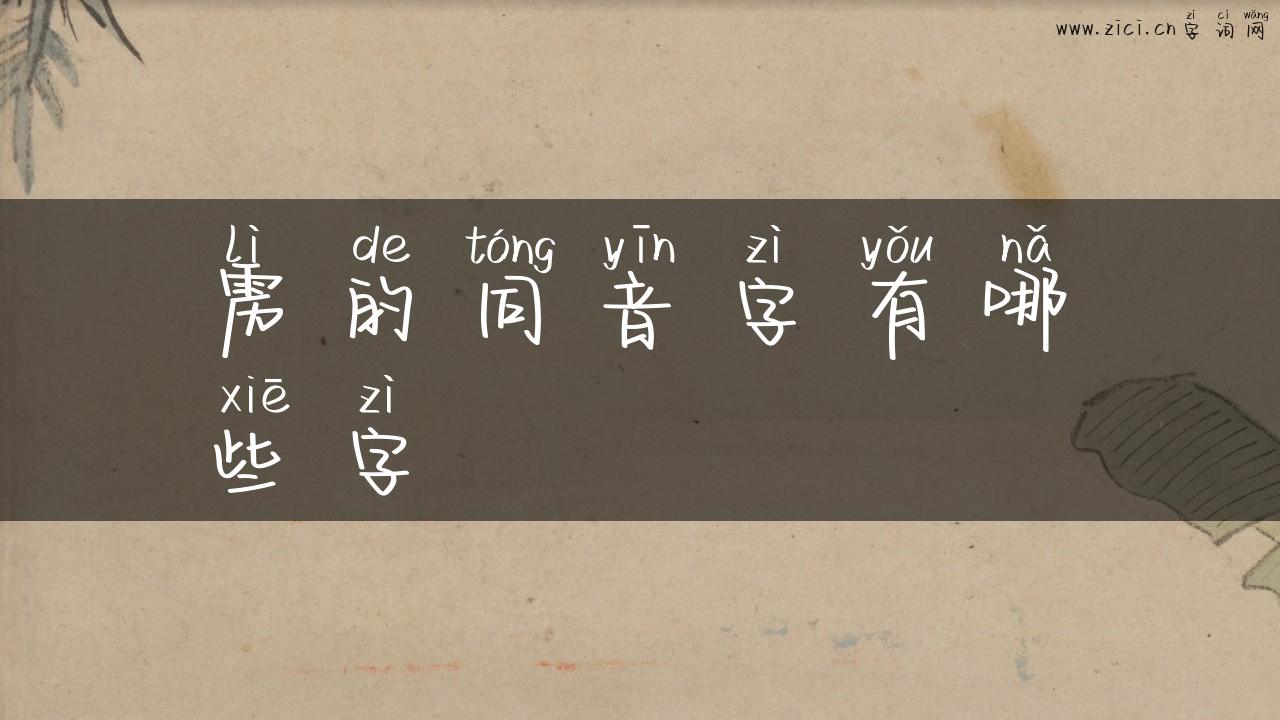 zì cí wǎng
www.zici.cn 字 词 网
lì de tóng yīn zì yǒu nǎ
雳 的 同 音 字 有 哪
xiē zì
些 字